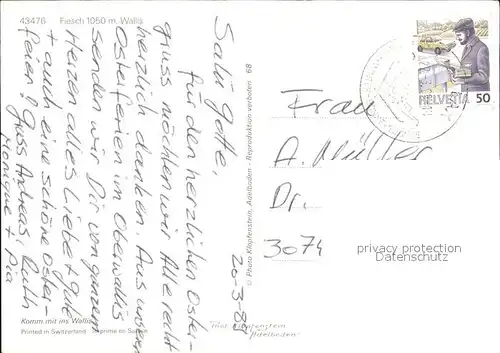 43476 Fiesch 1050 m, Wallis
Salü Gotte,
für den herzlichen Oster-
gruss möchten wir Alle recht
herzlich danken. Aus unseren
Osterferien im Oberwallis
senden wir Dir von ganzem
Herzen alles Liebe + gute
+ auch eine schöne Oster-
feier! Gruss Andreas, Ruth
Monique + Pia
Komm mit ins Wallis
Printed in Switzerland Imprimé en Suisse
© Photo Klopfenstein, Adelboden - Reproduktion verboten 68
20-3-89
Photo Klopfenstein
Adelboden
HELVETIA 50
Frau
A. Müller
Dr.
3074
privacy protection
Datenschutz